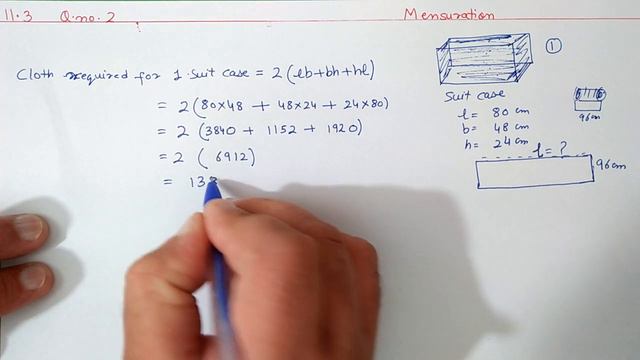 11.3 Q.no.2 Mensuration
Cloth required for 1 suit case = 2(lb+bh+hl)
= 2(80×48 + 48×24 + 24×80)
= 2 (3840 + 1152 + 1920)
= 2 (6912)
= 138
1
Suit case
l = 80 cm
b = 48 cm
h = 24 cm
96cm
l = ?
96cm